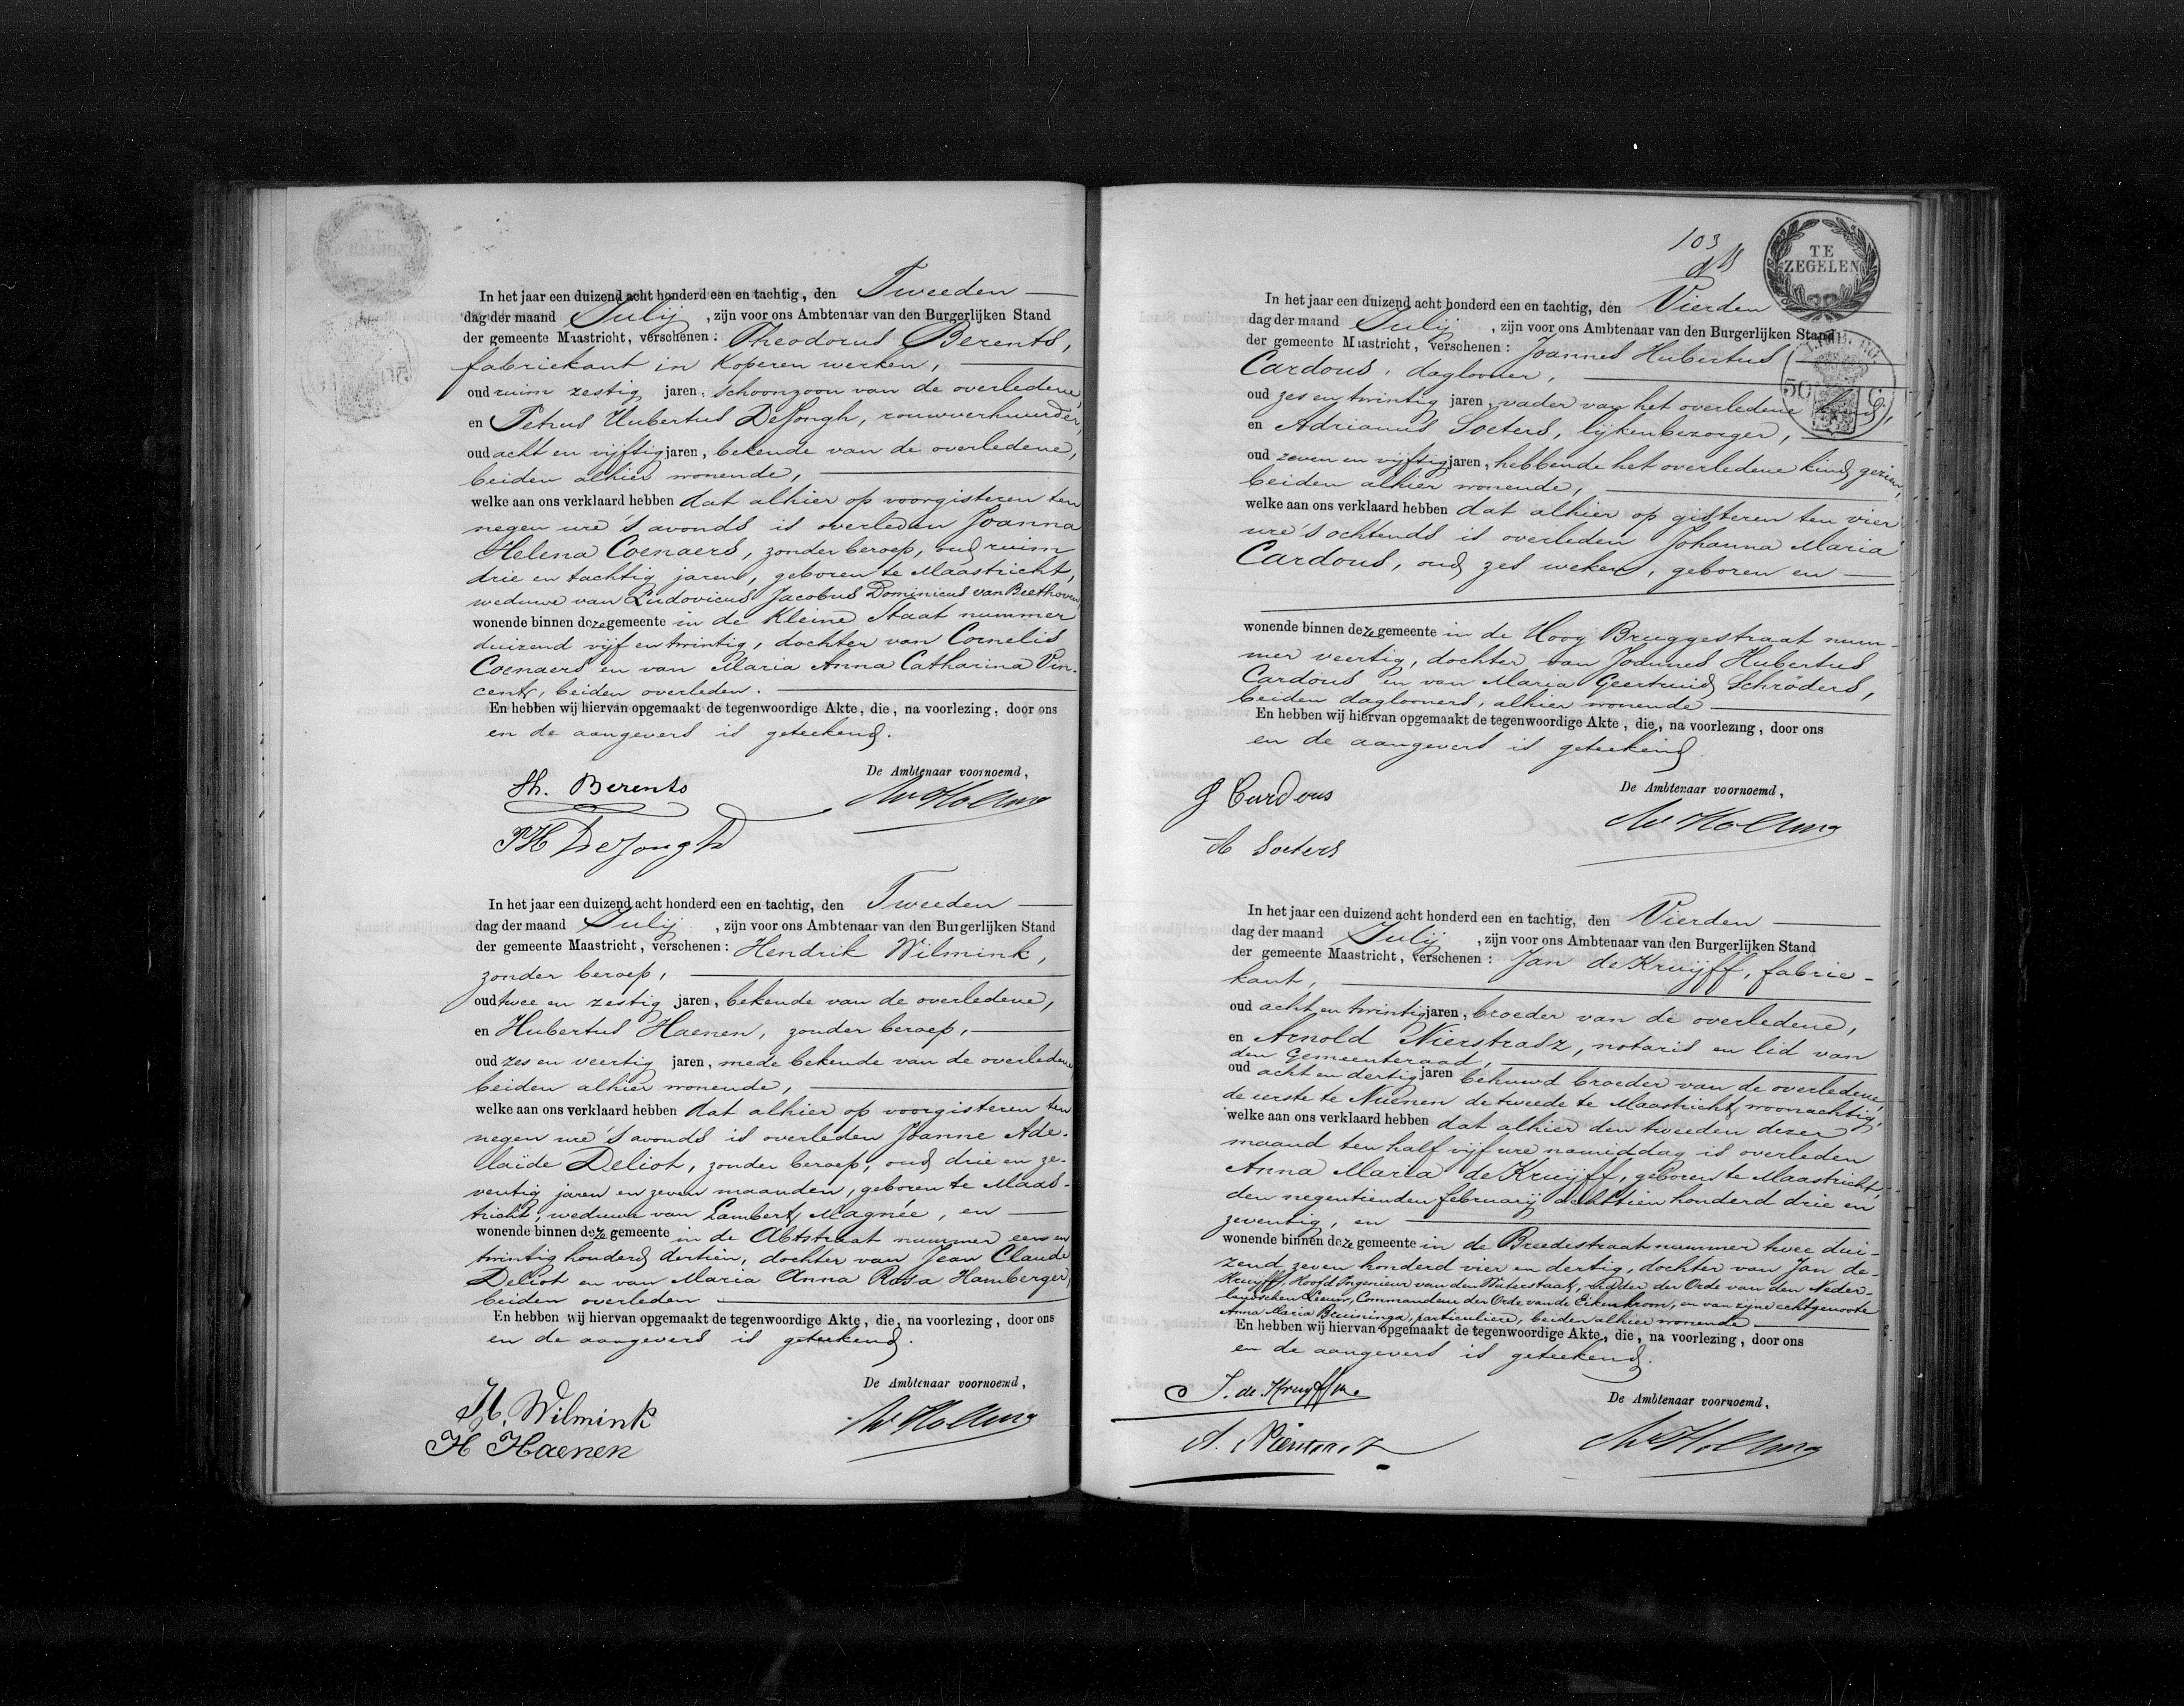 In het jaar een duizend acht honderd een en tachtig, den Tweeden
dag der maand Julij, zijn voor ons Ambtenaar van den Burgerlijken Stand
der gemeente Maastricht, verschenen: Theodorus Berents,
fabriekant in Koperen werken,
oud ruim zestig jaren, schoonzoon van de overledene,
en Petrus Hubertus DeJongh, rouwverhuurder,
oud acht en vijftig jaren, bekende van de overledene,
beiden alhier wonende,
welke aan ons verklaard hebben dat alhier op voorgisteren ten
negen ure 's avonds is overleden Joanna
Helena Coenaers, zonder beroep, oud ruim
drie en tachtig jaren, geboren te Maastricht,
weduwe van Ludovicus Jacobus Dominicus van Beethoven,
wonende binnen deze gemeente in de Kleine Staat nummer
duizend vijf en twintig, dochter van Cornelis
Coenaers en van Maria Anna Catharina Vin-
cent, beiden overleden.
En hebben wij hiervan opgemaakt de tegenwoordige Akte, die, na voorlezing, door ons
en de aangevers is geteekend.
De Ambtenaar voornoemd,
Th. Berents
PH DeJongh
In het jaar een duizend acht honderd een en tachtig, den Tweeden
dag der maand Julij, zijn voor ons Ambtenaar van den Burgerlijken Stand
der gemeente Maastricht, verschenen: Hendrik Wilmink,
zonder beroep,
oud twee en zestig jaren, bekende van de overledene,
en Hubertus Haenen, zonder beroep,
oud zes en veertig jaren, mede bekende van de overledene
beiden alhier wonende,
welke aan ons verklaard hebben dat alhier op voorgisteren ten
negen ure 's avonds is overleden Joanne Ade-
laïde Deliot, zonder beroep, oud drie en ze-
ventig jaren en zeven maanden, geboren te Maas-
tricht, weduwe van Lambert Magnée, en
wonende binnen deze gemeente in de Abtstraat nummer een en
twintig honderd dertien, dochter van Jean Claude
Deliot en van Maria Anna Rosa Hamberger,
beiden overleden
En hebben wij hiervan opgemaakt de tegenwoordige Akte, die, na voorlezing, door ons
en de aangevers is geteekend.
De Ambtenaar voornoemd,
H. Wilmink
H Haenen
103
TE
ZEGELEN
LIMBURG
50 C
In het jaar een duizend acht honderd een en tachtig, den Vierden
dag der maand Julij, zijn voor ons Ambtenaar van den Burgerlijken Stand
der gemeente Maastricht, verschenen: Joannes Hubertus
Cardous, daglooner,
oud zes en twintig jaren, vader van het overledene kind,
en Adrianus Soeters, lijkenbezorger,
oud zeven en vijftig jaren, hebbende het overledene kind gezien,
beiden alhier wonende,
welke aan ons verklaard hebben dat alhier op gisteren ten vier
ure 's ochtends is overleden Johanna Maria
Cardous, oud zes weken, geboren en
wonende binnen deze gemeente in de Hoog Bruggestraat num-
mer veertig, dochter van Joannes Hubertus
Cardous en van Maria Geertruid Schröders,
beiden daglooners, alhier wonende
En hebben wij hiervan opgemaakt de tegenwoordige Akte, die, na voorlezing, door ons
en de aangevers is geteekend
De Ambtenaar voornoemd,
J Cardous
A Soeters
In het jaar een duizend acht honderd een en tachtig, den Vierden
dag der maand Julij, zijn voor ons Ambtenaar van den Burgerlijken Stand
der gemeente Maastricht, verschenen: Jan de Kruijff, fabrie-
kant,
oud acht en twintig jaren, broeder van de overledene,
en Arnold Nierstrasz, notaris en lid van
den Gemeenteraad,
oud acht en dertig jaren behuwd broeder van de overledene,
de eerste te Nuenen de tweede te Maastricht woonachtig,
welke aan ons verklaard hebben dat alhier den tweeden dezer
maand ten half vijf ure namiddag is overleden
Anna Maria de Kruijff, geboren te Maastricht,
den negentienden februarij achttien honderd drie en
zeventig, en
wonende binnen deze gemeente in de Breedestraat nummer twee dui-
zend zeven honderd vier en dertig, dochter van Jan de
Kruijff, Hoofd Ingenieur van den Waterstaat, ridder der Orde van den Neder-
landschen Leeuw, Commandeur der Orde van de Eikenkroon, en van zijne echtgenoote
Anna Maria Bruininga, particuliere, beiden alhier wonende
En hebben wij hiervan opgemaakt de tegenwoordige Akte, die, na voorlezing, door ons
en de aangevers is geteekend.
De Ambtenaar voornoemd,
J. de Kruyff
A. Nierstrasz